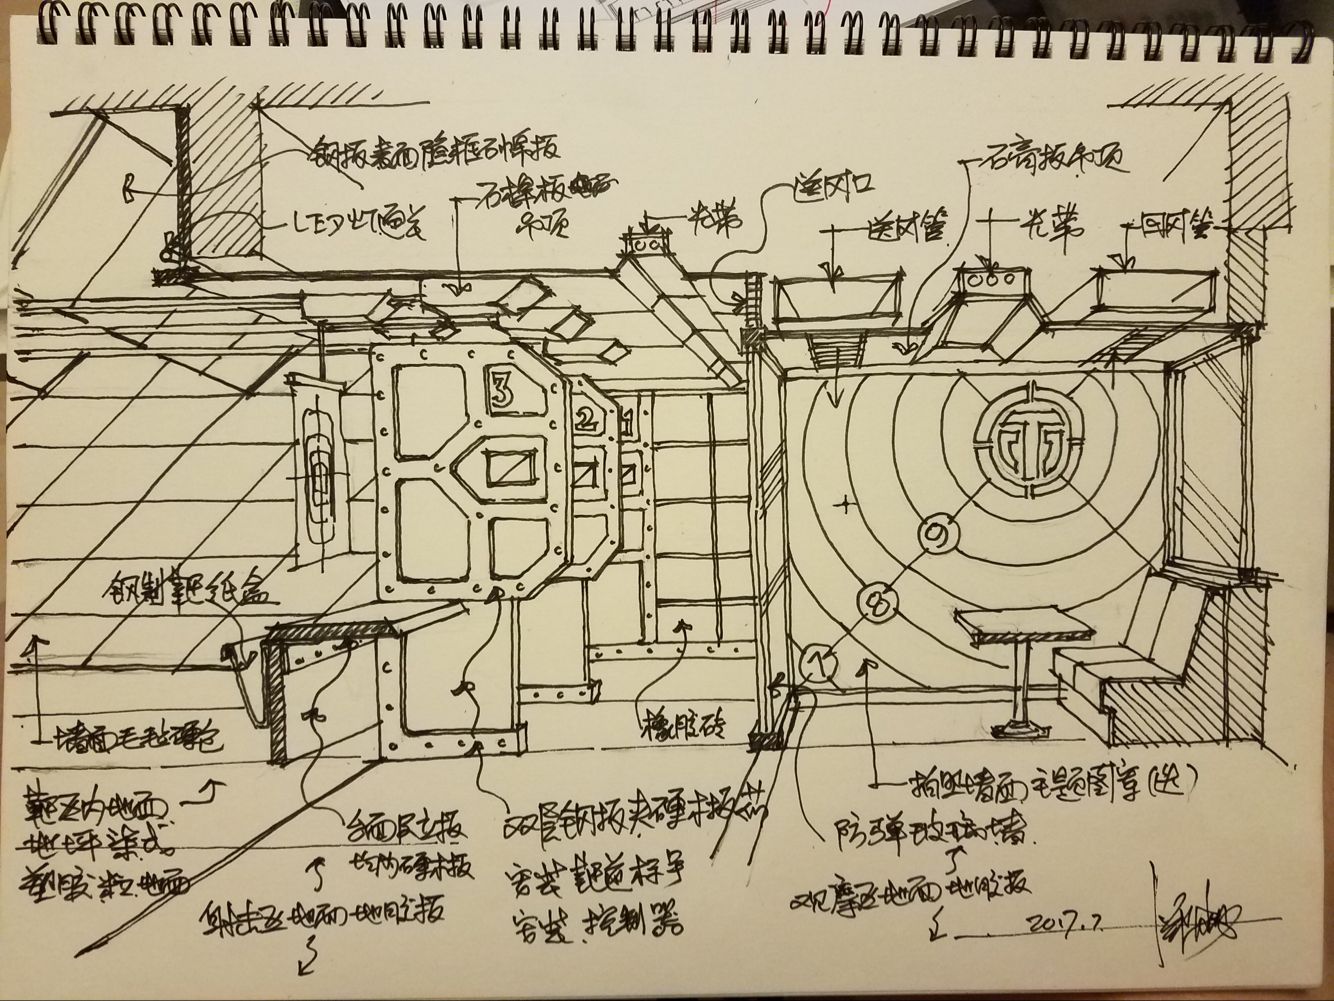 钢板表面隐框
LED灯
石棉板
吊顶
光带
送风口
送风管
石膏板吊顶
光带
回风管
3
2
1
9
8
7
钢制靶纸盒
墙面毛毡
橡胶砖
靶区内地面
地坪漆或
塑胶粒地面
台面及立板
均为硬木板
射击区地面地胶板
双层钢板夹硬木板芯
安装靶道标号
安装控制器
墙面主题图章(送)
防弹玻璃墙
观摩区地面地胶板
2017.7.